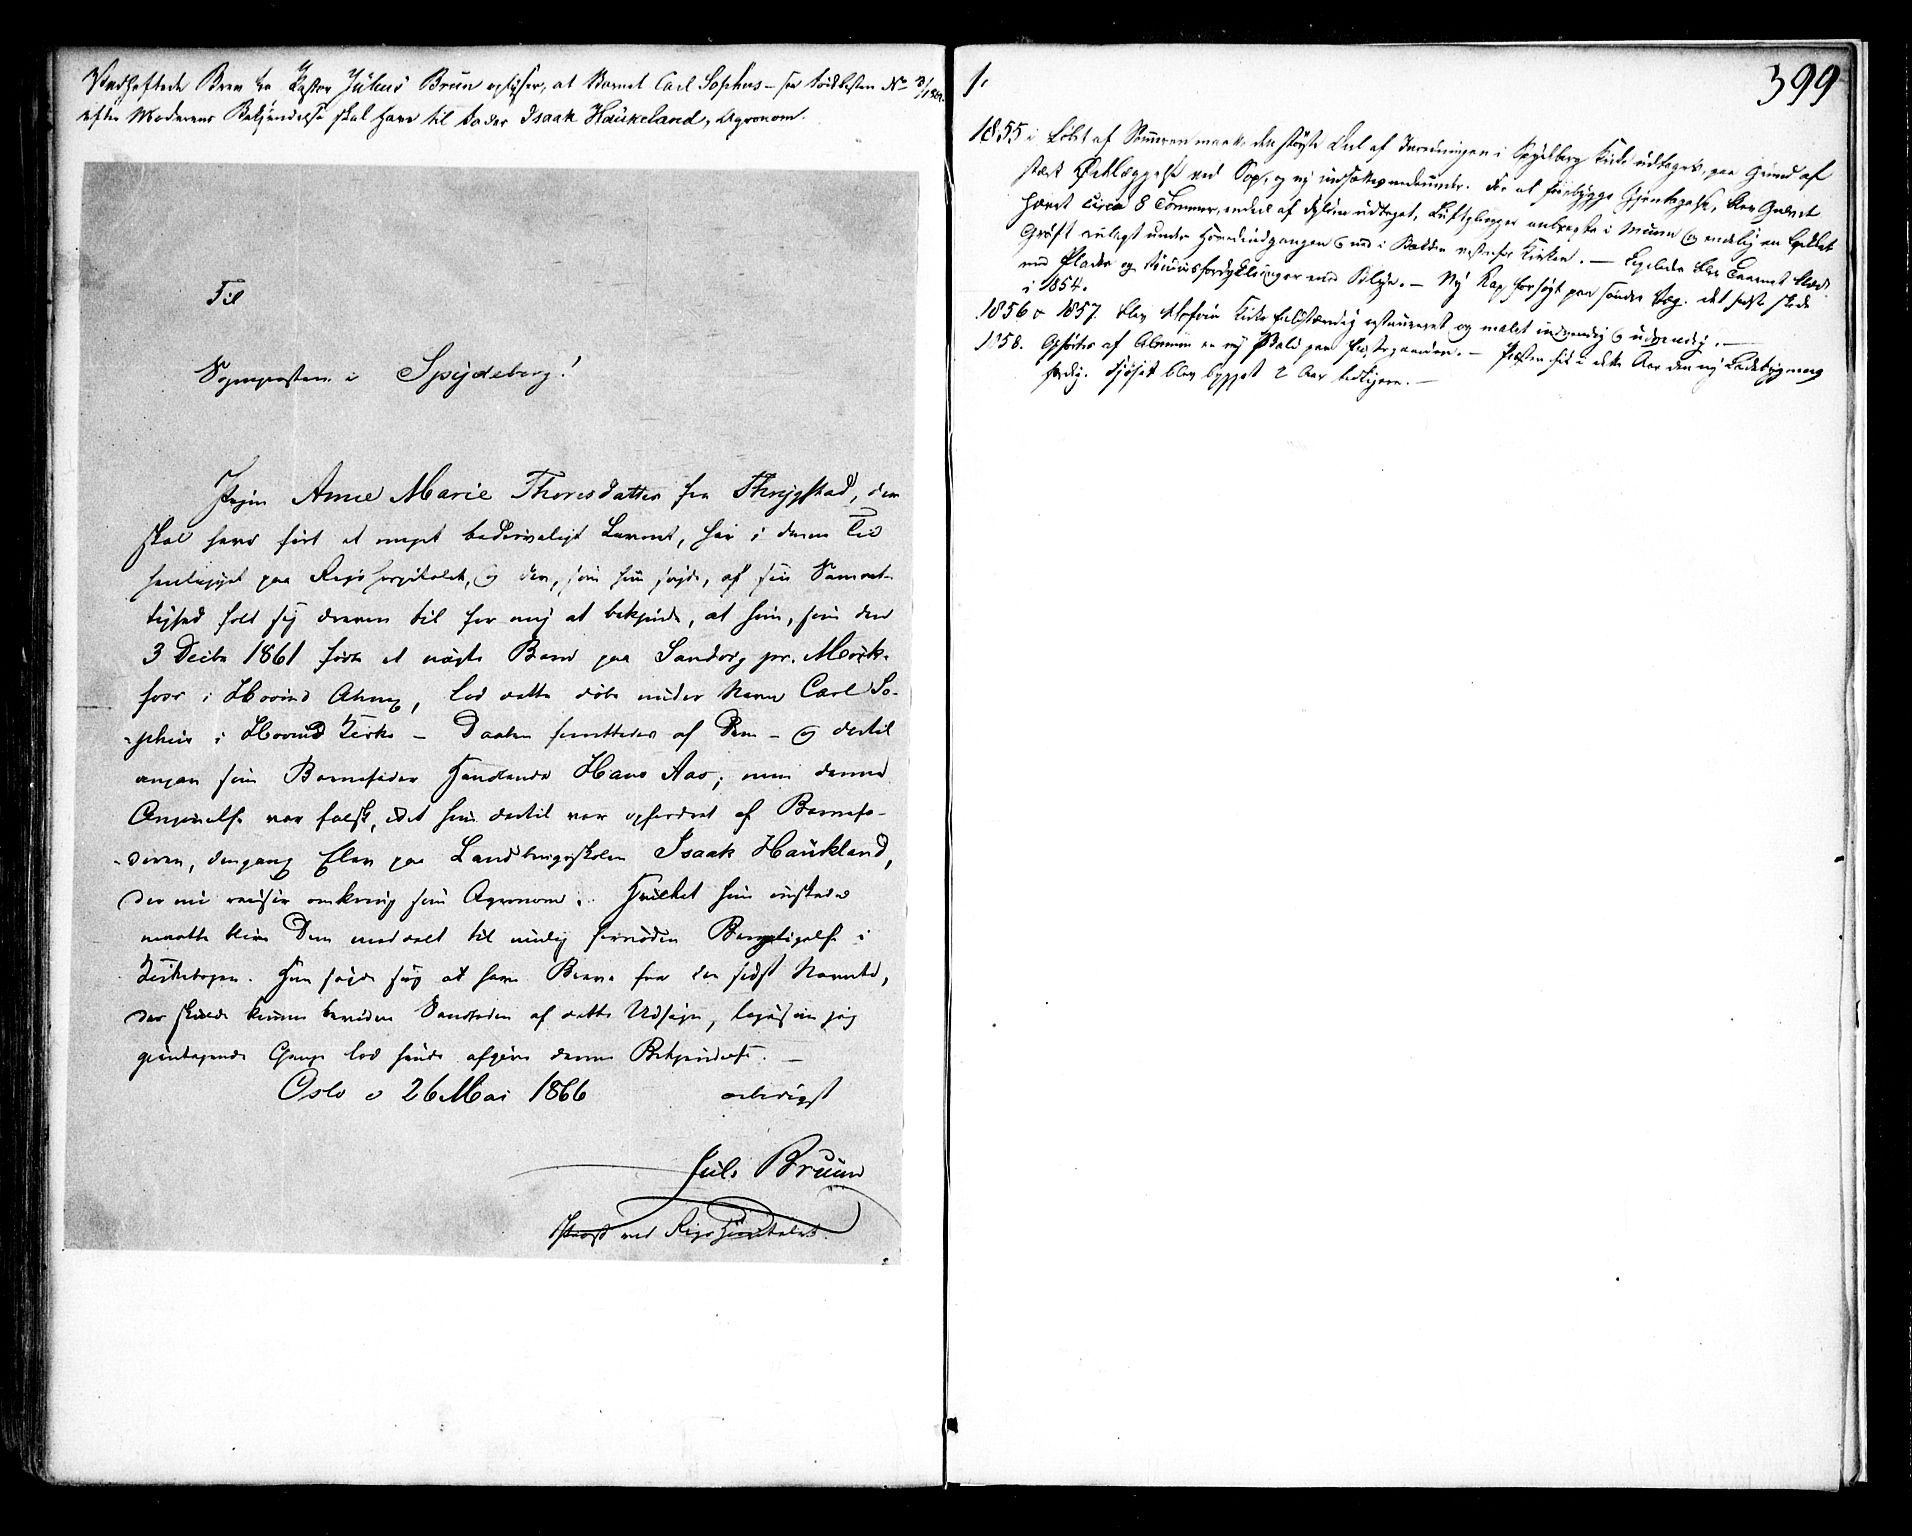 Vedheftede Brev fra Pastor Julius Bruun oplyser, at Barnet Carl Sophus – see Fødselslisten No 3/1861
efter Moderens Bekjendelse skal have til Fader Isaak Haukeland, Agronom.
Til
Sognepresten i Spydeberg!
Pigen Anne Marie Thoresdatter fra Thrygstad, der
skal have ført et meget bedrøveligt Levnet, har i denne Tid
henligget paa Rigshospitalet, og der, som hun sagde, af sin Samvit-
tighed følt sig dreven til for mig at bekjende, at hun, som den
3 Decbr 1861 fødte et uægte Barn paa Sandvig pr. Mørk-
foss i Hovind Annex, lod dette døbe under Navn Carl So-
phus i Hovind Kirke – Daaben forrettedes af Dem – og dertil
angav som Barnefader Hans Aas; men denne
Angivelse var falsk, idet hun dertil var opfordret af Barnefa-
deren, dengang Elev paa Landbrugsskolen Isaak Haukland,
der nu reiser omkring som Agronom. Hvilket hun ønskede
maatte blive Dem meddelt til mulig fornøden Berigtigelse i
Kirkebogen. Hun sagde sig at have Breve fra den sidst Nævnte,
der skulde kunne bevidne Sandheden af dette Udsagn, ligesom jeg
gjentagende Gange lod hende afgive denne Bekjendelse. –
Oslo d 26 Mai 1866 ærbødigst
Juls Bruun
Præst ved Rigshospitalet.
1.
399
1855 i Løbet af Sommeren maatte den største Deel af Inredningen i Spydeberg Kirke udtages, paa Grund af
stærk Ødelæggelse ved Sop, og ny indsættes nedenunder. For at forebygge Gjentagelse, blev Gulvet
hævet circa 8 Tommer, endeel af Fylden udtaget, Luftglugger anbragte i Muren og endelig en lukket
Grøft anlagt under Hovedindgangen og ud i Bakken vestenfor Kirken. – Ligeledes blev Taarnet klædt
med Plader og – Ny Kap forsøgt paa søndre Væg. det sidste skede
i 1854.
1856 & 1857. blev Hovin Kirke fuldstændig restaureret og malet indvendig og udvendig. –
1858. Opførtes af Almuen en ny Stald paa Prestegaarden. – Presten fik i dette Aar den ny Ladebygning
færdig. Fjøset blev bygget 2 Aar tidligere. –